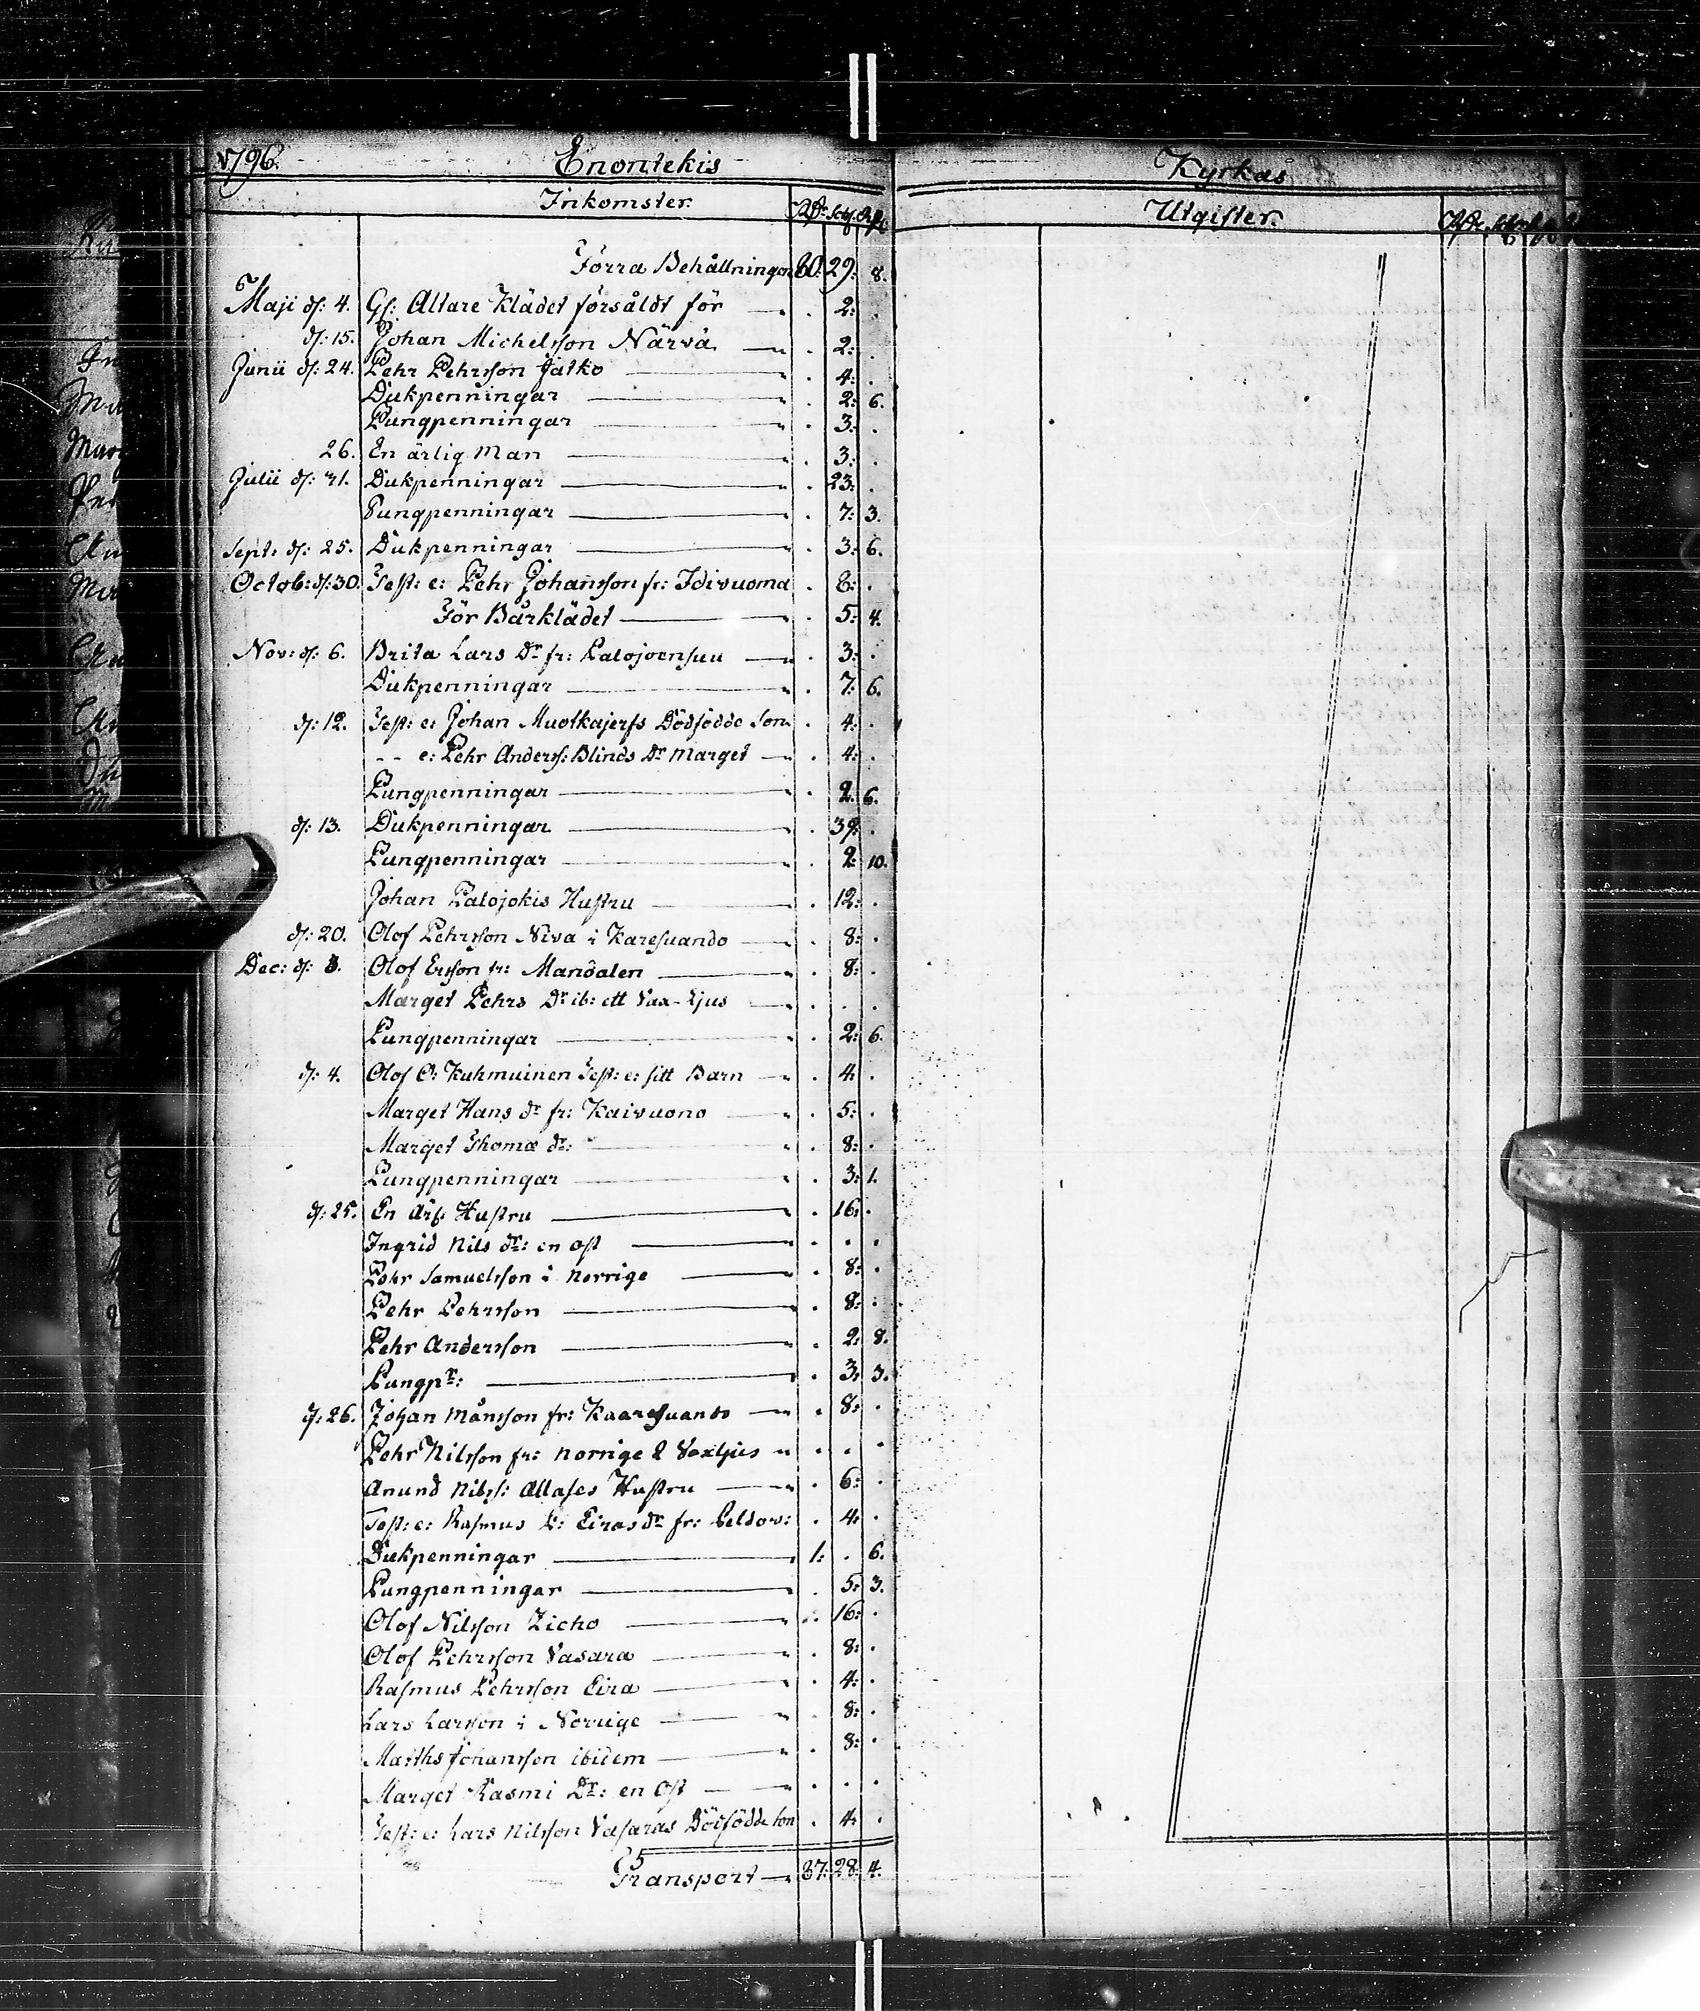 1796. Enontekis
Inkomster. Rdr Sch. Rst.
Förra Behållningen 80: 29: 8.
Maji d: 4. Gl: Altare Klädet försåldt för . 2: .
d: 15. Johan Michelsson Närvä . 2: .
Junii d: 24. Pehr Pehrsson Jatko . 4: .
Dukpenningar . 2: 6.
Pungpenningar . 3: .
26. En ärlig Man . 3: .
Julii d: 31. Dukpenningar . 23: .
Pungpenningar . 7: 3.
Sept: d: 25. Dukpenningar . 3: 6.
Octob: d: 30. Test: e: Pehr Johansson fr: Idivuoma . 8: .
För Bårklädet . 5: 4.
Nov: d: 6. Brita Lars Dr fr: Palojoensuu . 3: .
Dukpenningar . 7: 6.
d: 12. Test: e: Johan Muotkajerfs Dödfödde Son . 4: .
-- e: Pehr Anderss: Blinds Dr Marget . 4: .
Pungpenningar . 2. 6.
d: 13. Dukpenningar . 39: .
Pungpenningar . 2: 10.
Johan Palojokis Hustru . 12: .
d: 20. Olof Pehrsson Niva i Karesuando . 8: .
Dec: d: 3. Olof Ersson fr: Mandalen . 8: .
Marget Pehrs Dr ib: ett Vax-Ljus . . .
Pungpenningar . 2: 6.
d: 4. Olof O: Kuhmuinen Test: e: sitt Barn . 4: .
Marget Hans dr fr: Kaivuono . 5: .
Marget Thomæ dr: . 8: .
Pungpenningar . 3: 1.
d: 25. En ärl: Hustru . 16: .
Ingrid Nils dr: en Ost . . .
Pehr Samuelsson i Norrige . 8: .
Pehr Pehrsson . 8: .
Pehr Andersson . 2: 8.
Pungpr: . 3. 3.
d: 26. Johan Månsson fr: Kaaresuando . 8: .
Pehr Nilsson fr: Norrige 2 Vaxljus . . .
Anund Nilss: Allases Hustru . 6: .
Test: e: Rasmus P: Eiras dr fr: Peldov: . 4: .
Dukpenningar 1: . 6.
Pungpenningar . 5: 3.
Olof Nilsson Zicho . 16: .
Olof Pehrsson Vasara . 8: .
Rasmus Pehrsson Eira . 4: .
Lars Larsson i Norrige . 8: .
Matths Johansson ibidem . 8: .
Marget Rasmi Dr: en Ost . . .
Test: e: Lars Nilsson Vasaras Dödfödde Son . 4. .
Transport 87: 28: 4.
Kyrkas
Utgifter.